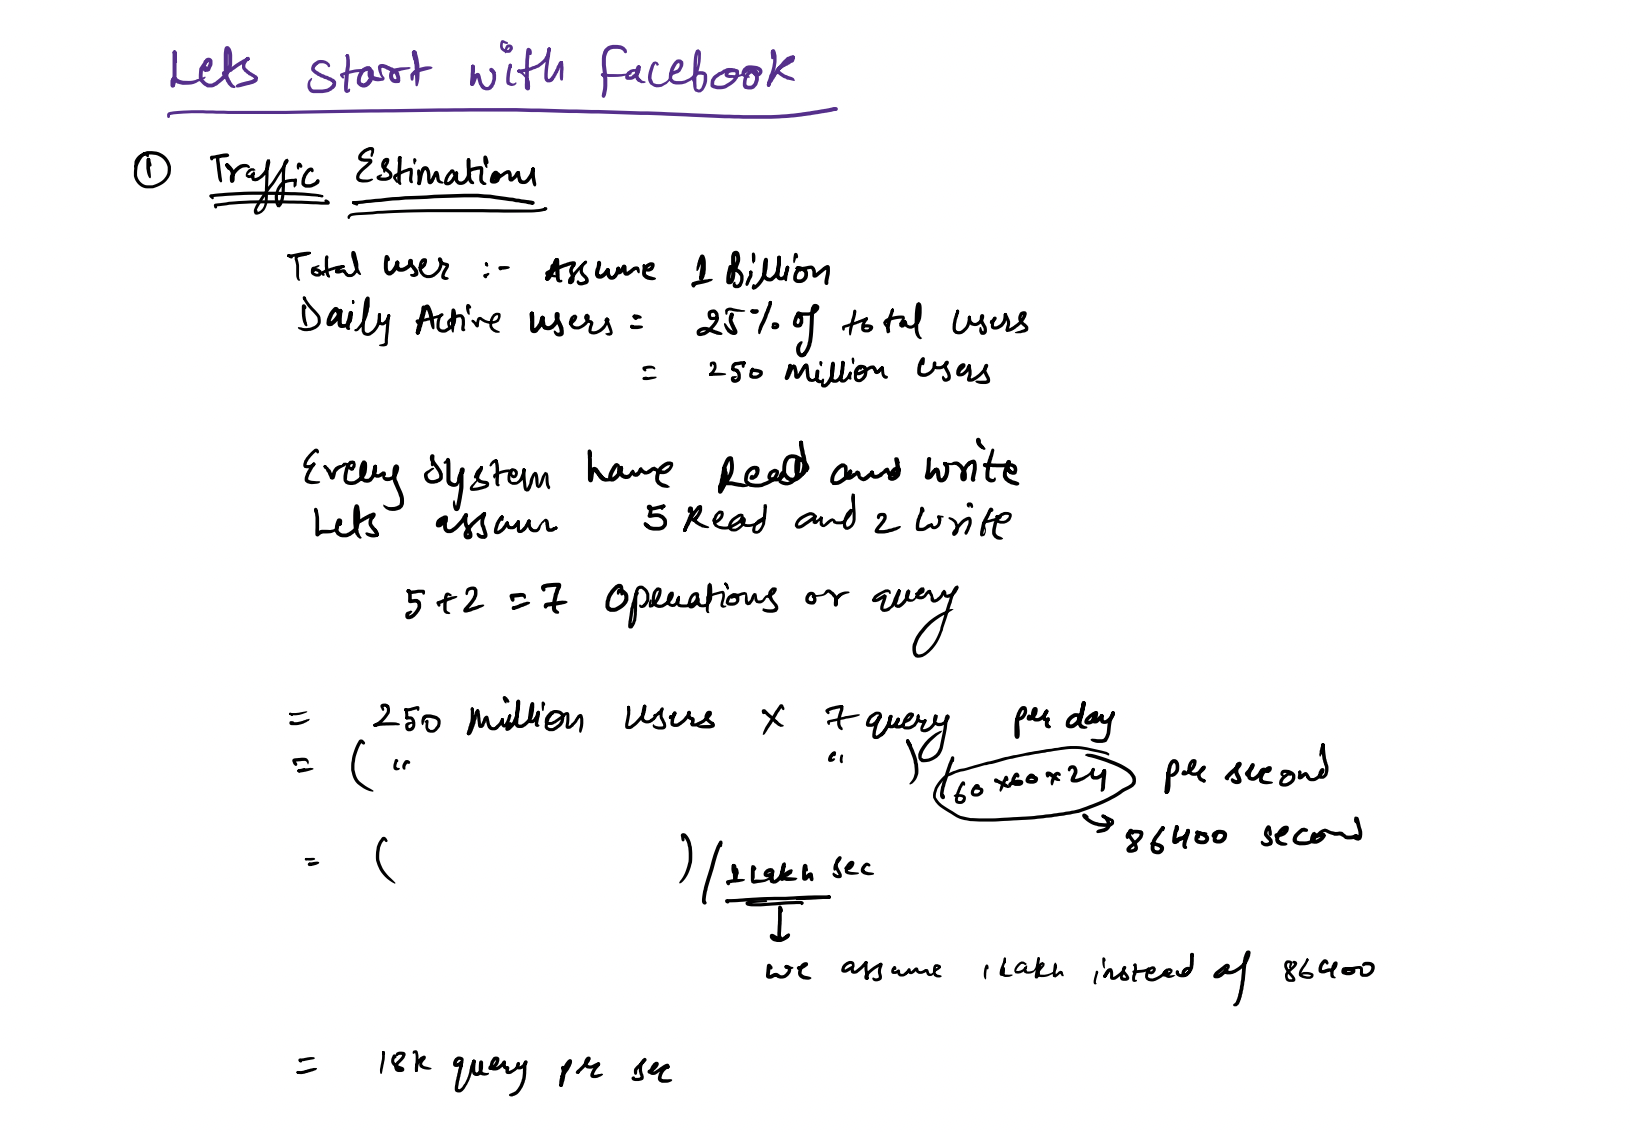 Lets start with facebook
① Traffic Estimations
Total user :- Assume 1 Billion
Daily Active users = 25% of total users
= 250 million users
Every system have Read and write
Lets assum 5 Read and 2 write
5 + 2 = 7 operations or query
= 250 million users × 7 query per day
= ( " " ) / 60 × 60 × 24 per second
→ 86400 second
= ( ) / 1 Lakh sec
↓
we assume 1 Lakh instead of 86400
= 18k query per sec